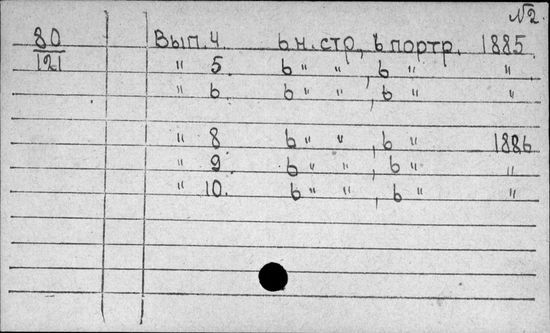 №2.
80 Вып. 4. 6 н. стр., 6 портр. 1885.
121 " 5. 6 " " , 6 " "
" 6. 6 " " , 6 " "
" 8 6 " " , 6 " 1886
" 9. 6 " " , 6 " "
" 10. 6 " " , 6 " "